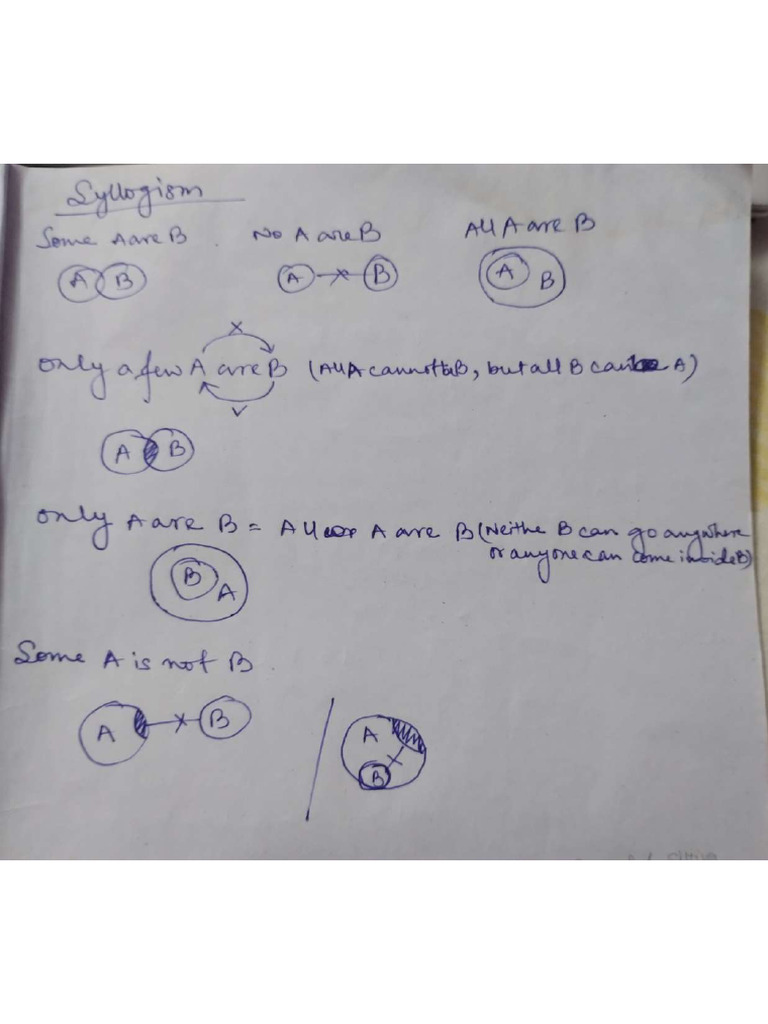 Syllogism
Some A are B No A are B All A are B
A B A B A B
only a few A are B (All A cannot be B, but all B can be A)
A B
only A are B = All A are B (Neithe B can go anywhere
or anyone can come inside B)
B A
Some A is not B
A B A B